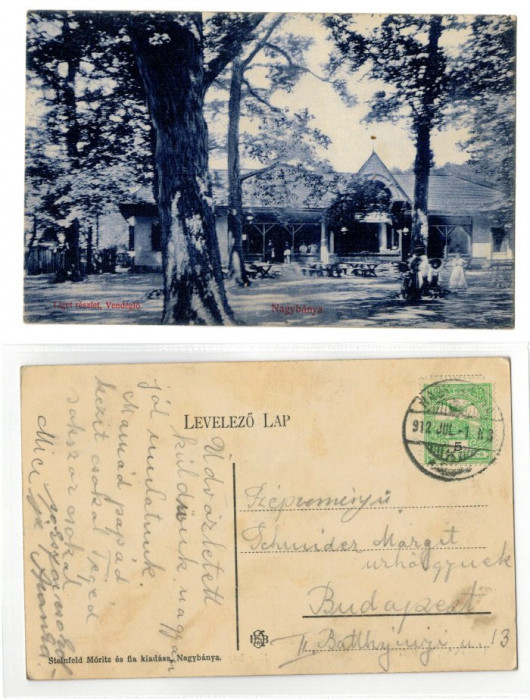 Liget részlet. Vendéglő.
Nagybánya
LEVELEZŐ LAP
912 JUL.-1
5
Üdvözletett
küldünk nagyon
jól mulatunk.
Mamád papád
kezit csokol Téged
sokszor csokol
Mici
Szépreményű
Schmidek Margit
urhölgynek
Budapest
II. Batthyányi u. 13
Steinfeld Móritz és fia kiadása, Nagybánya.